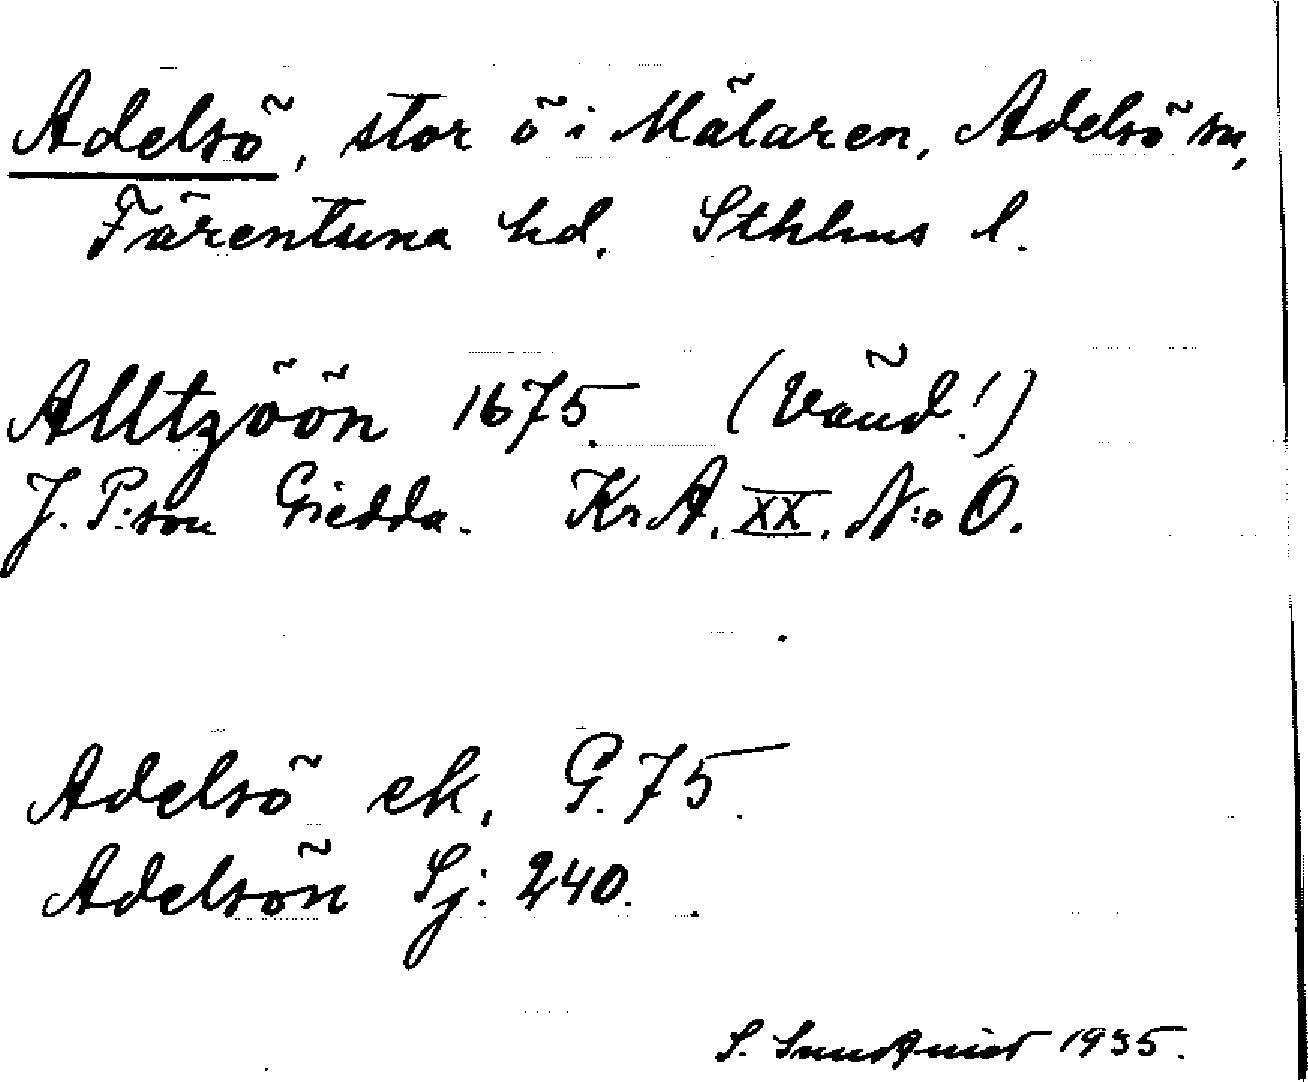 Adelsö, stor ö i Mälaren, Adelsö sn,
Färentuna hd. Sthlms l.
Alltzöön 1675. (Vänd!)
J. P:son Giedda. KrA. XX. N:o O.
Adelsö ek. G. 75.
Adelsön Sj: 240.
S. 1935.